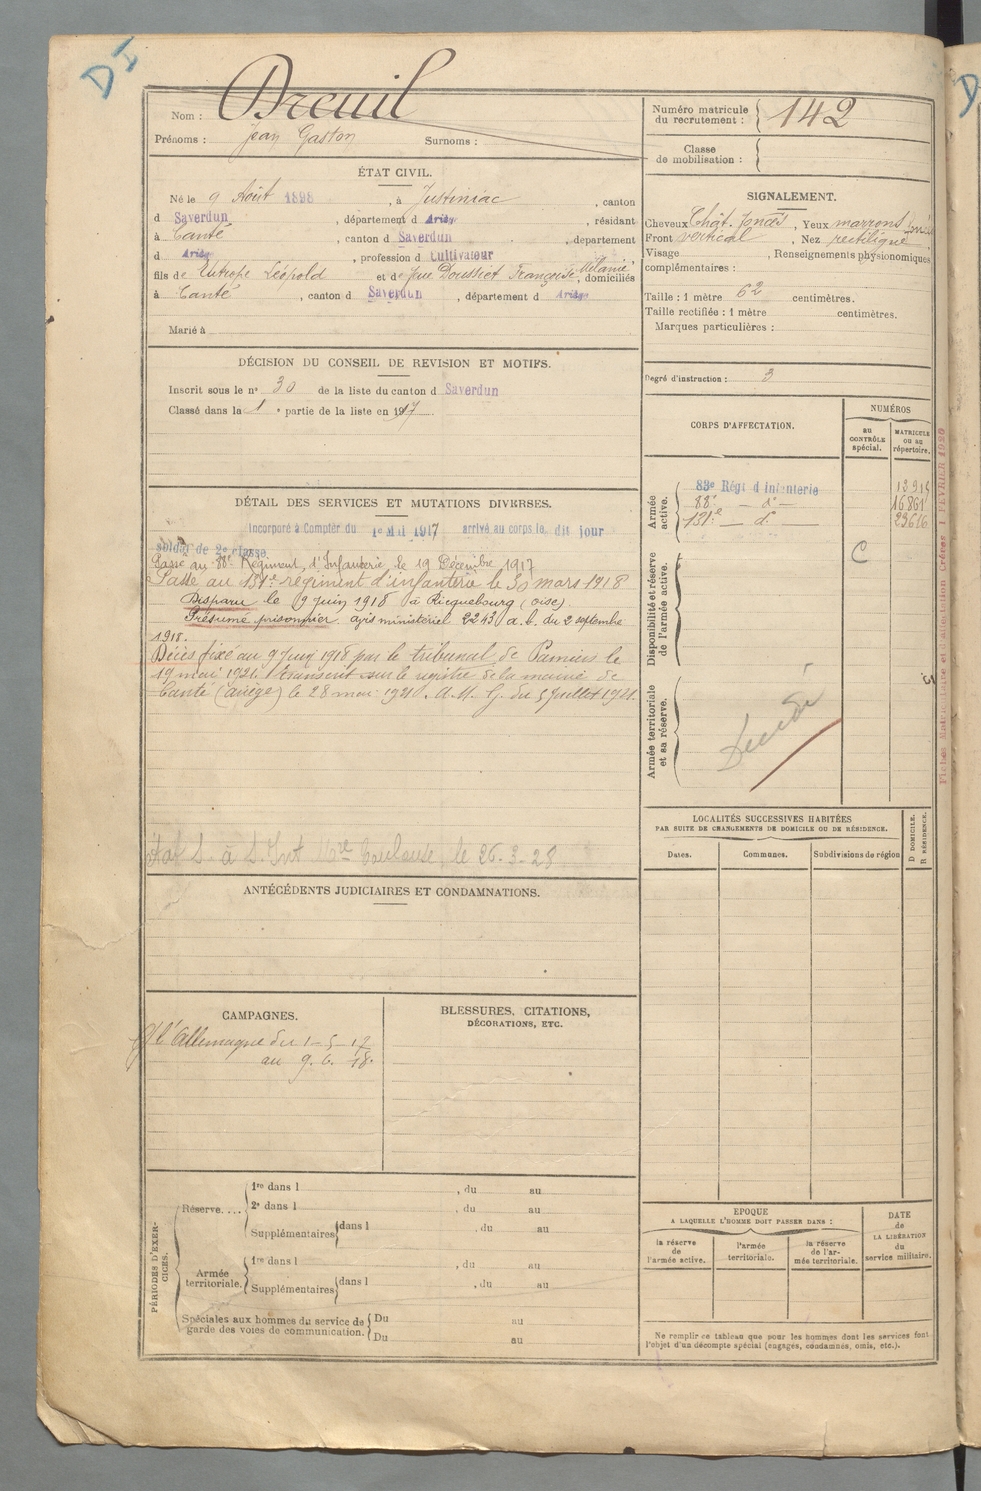 DI
Nom : Dreuil
Prénoms : Jean Gaston Surnoms :
Numéro matricule du recrutement : 142
Classe de mobilisation :
ÉTAT CIVIL.
Né le 9 Août 1898, à Justiniac, canton
d Saverdun, département d Ariège, résidant
à Canté, canton d Saverdun, département
d Ariège, profession d Cultivateur
fils de Eutrope Léopold et de feue Doussiet Françoise Mélanie, domiciliés
à Canté, canton d Saverdun, département d Ariège
Marié à
SIGNALEMENT.
Cheveux Chât. foncés, Yeux marrons
Front vertical, Nez rectiligne
Visage , Renseignements physionomiques
complémentaires :
Taille : 1 mètre 62 centimètres.
Taille rectifiée : 1 mètre centimètres.
Marques particulières :
Degré d'instruction : 3
DÉCISION DU CONSEIL DE REVISION ET MOTIFS.
Inscrit sous le n° 30 de la liste du canton d Saverdun
Classé dans la 1 e partie de la liste en 1917
CORPS D'AFFECTATION.
NUMÉROS
au CONTRÔLE spécial.
MATRICULE ou au répertoire.
Armée active.
83e Régt d'Infanterie 13914
88e — d° — 16861
131e — d° 23616
Disponibilité et réserve de l'armée active.
C
Armée territoriale et sa réserve.
Décédé
DÉTAIL DES SERVICES ET MUTATIONS DIVERSES.
Incorporé à Compter du 1er Mai 1917 arrivé au corps le dit jour
soldat de 2e classe
Passé au 88e Régiment d'Infanterie le 19 Décembre 1917
Passé au 131e régiment d'infanterie le 30 mars 1918
Disparu le 9 juin 1918 à Ricquebourg (Oise)
Présumé prisonnier avis ministériel 2243 a.b. du 2 septembre
1918.
Décès fixé au 9 juin 1918 par le tribunal de Pamiers le
19 mai 1921. Transcrit sur le registre de la mairie de
Canté (Ariège) le 28 mai 1921. A.M. G. du 5 Juillet 1921.
à S. Int Mre Toulouse, le 26-3-28
LOCALITÉS SUCCESSIVES HABITÉES
PAR SUITE DE CHANGEMENTS DE DOMICILE OU DE RÉSIDENCE.
Dates. Communes. Subdivisions de région
D DOMICILE. R RÉSIDENCE.
ANTÉCÉDENTS JUDICIAIRES ET CONDAMNATIONS.
CAMPAGNES.
C/ l'Allemagne du 1-5-17
au 9. 6. 18.
BLESSURES, CITATIONS,
DÉCORATIONS, ETC.
PÉRIODES D'EXERCICES.
Réserve....
1re dans l , du au
2e dans l , du au
Supplémentaires dans l , du au
Armée territoriale.
1re dans l , du au
Supplémentaires dans l , du au
Spéciales aux hommes du service de garde des voies de communication.
Du au
Du au
EPOQUE
A LAQUELLE L'HOMME DOIT PASSER DANS :
la réserve de l'armée active.
l'armée territoriale.
la réserve de l'armée territoriale.
DATE de LA LIBÉRATION du service militaire.
Ne remplir ce tableau que pour les hommes dont les services font
l'objet d'un décompte spécial (engagés, condamnés, omis, etc.).